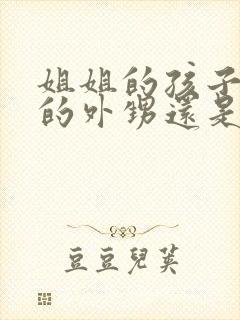 姐姐的孩子
的外甥還是
豆豆兒英